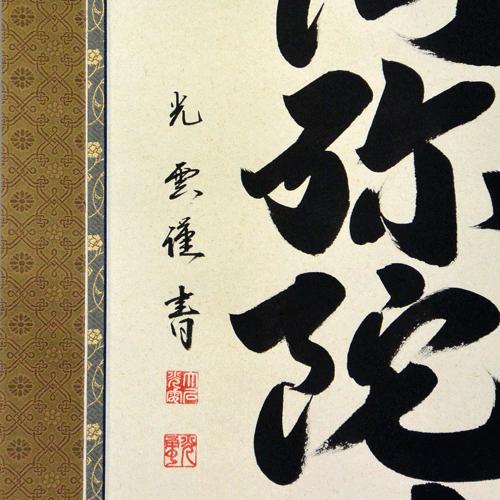 阿弥陀
光雲謹書